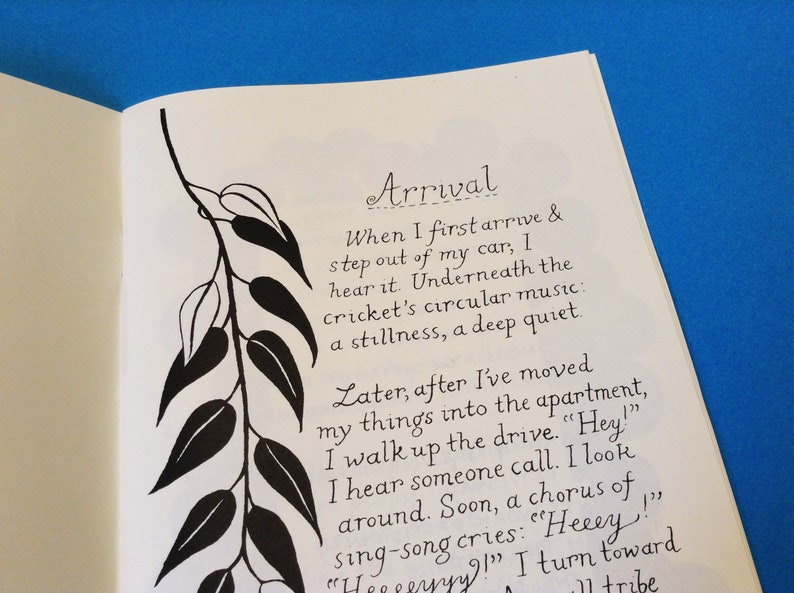 Arrival
When I first arrive &
step out of my car, I
hear it. Underneath the
cricket's circular music:
a stillness, a deep quiet.
Later, after I've moved
my things into the apartment,
I walk up the drive. "Hey!"
I hear someone call. I look
around. Soon, a chorus of
sing-song cries: "Heeey!"
"Heeeeyyy?!" I turn toward
tribe